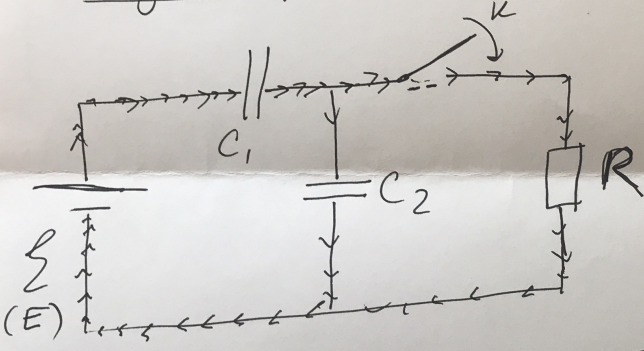 K
C₁
C₂
R
ℰ
(E)